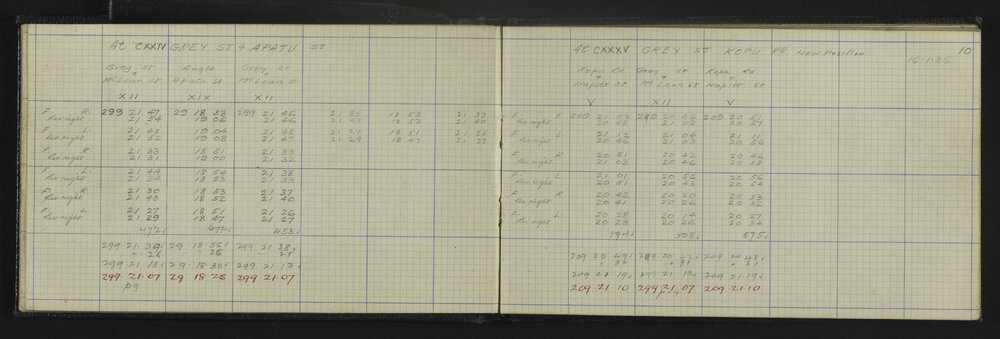 At CXXIV GREY ST & APATU ST
Grey St Eagle Grey St
& &
McLean St Apatu St McLean St
XII XIX XII
F R. 299 21 47 29 18 58 299 21 46 21 30 18 53 21 37
Rev night 21 54 19 06 21 46 21 43 18 52 21 40
F L. 21 48 19 04 21 48 21 27 18 51 21 26
Rev night 21 52 19 08 21 47 21 29 18 47 21 27
F R. 21 33 18 51 21 33
Rev night 21 31 19 00 21 32
F L. 21 44 18 54 21 38
Rev night 21 34 18 53 21 33
F R. 21 30 18 53 21 37
Rev night 21 43 18 52 21 40
F L. 21 27 18 51 21 26
Rev night 21 29 18 47 21 27
472 672 453
299. 21. 39 29 18 56 299 21 38
- 26 - 26 - 25
299 21 13 29 18 30 299 21 13
299. 21. 07 29 18 26 299. 21. 07
p9
10
At CXXXV GREY ST KOPU RD NEW Position
16.1.36
Kopu Rd Grey St Kopu Rd
& & &
Napier St McLean St Napier St
V XII V
F R 209 21 03 299 20 46 209 20 51
F L 21 12 21 04 21 11
Rev night 20 46 21 03 20 56
F R 20 51 20 42 20 46
Rev night 21 03 20 46 20 58
F L 21 01 20 56 20 56
Rev night 20 51 20 43 20 54
F R. 20 42 20 20 20 33
Rev night 20 41 20 26 20 32
F L. 20 28 20 14 20 27
Rev night 20 23 20 26 20 34
594 508 575
209 20 49 299 20 42 209 20 48
+ 31
209 21 19 299 21 13 209. 21 19
209 21 10 299 21. 07 209. 21. 10
p. 9